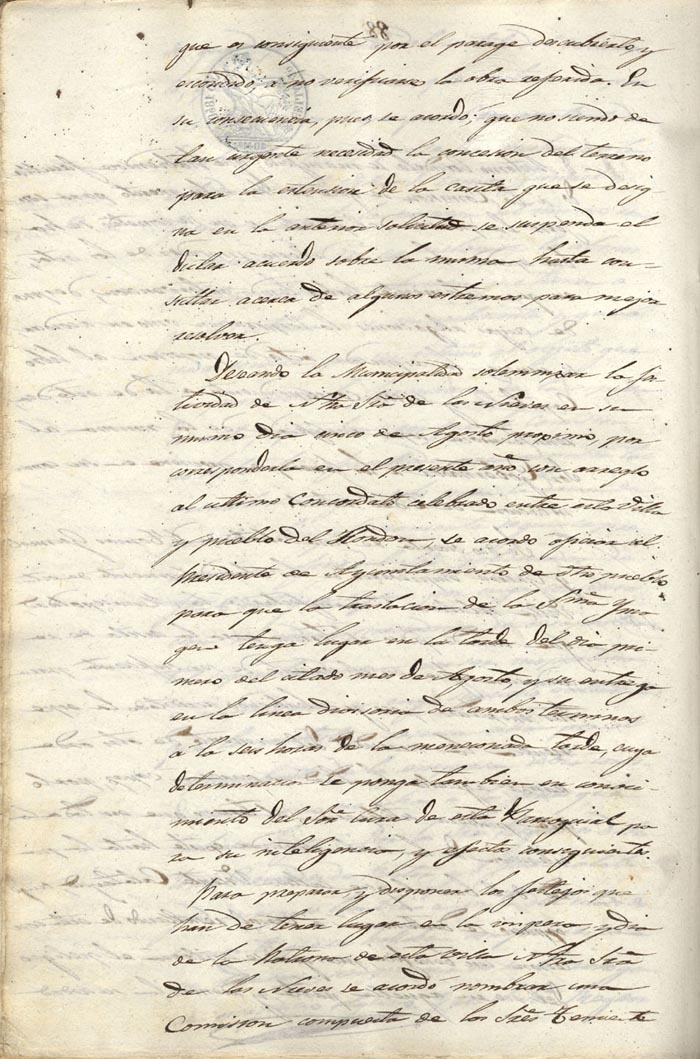 que es consiguiente por el parage descubierto y
escondido, a no verificarse la obra referida. En
su consecuencia, pues, se acordó; que no siendo de
tan urgente necesidad la concesion del terreno
para la estension de la casita que se desig
na en la anterior solicitud se suspenda el
dictar acuerdo sobre la misma hasta con-
sultar acerca de algunos estremos para mejor
resolver.
Deseando la Municipalidad solemnizar la fes
tividad de Ntra Sra de las Nieves en su
mismo dia cinco de Agosto, proximo, por
corresponderla en el presente año con arreglo
al ultimo Concordato celebrado entre esta Villa
y pueblo del Hondon, se acordó oficiar al
Presidente de Ayuntamiento de dho pueblo
para que la traslacion de la Sma Yma
gen tenga lugar en la tarde del dia pri-
mero del citado mes de Agosto, y su entrega
en la linea divisoria de ambos terminos
á la seis horas de la mencionada tarde, cuya
determinacion se ponga tambien en conoci-
miento del Sor Cura de esta Parroquial pa
ra su inteligencia, y efectos consiguientes.
Para preparar y disponer los festejos que
han de tener lugar en la vispera, y dia
de la Patrona de esta Villa Ntra Sra
de las Nieves se acordó nombrar una
Comision compuesta de los Sres Teniente